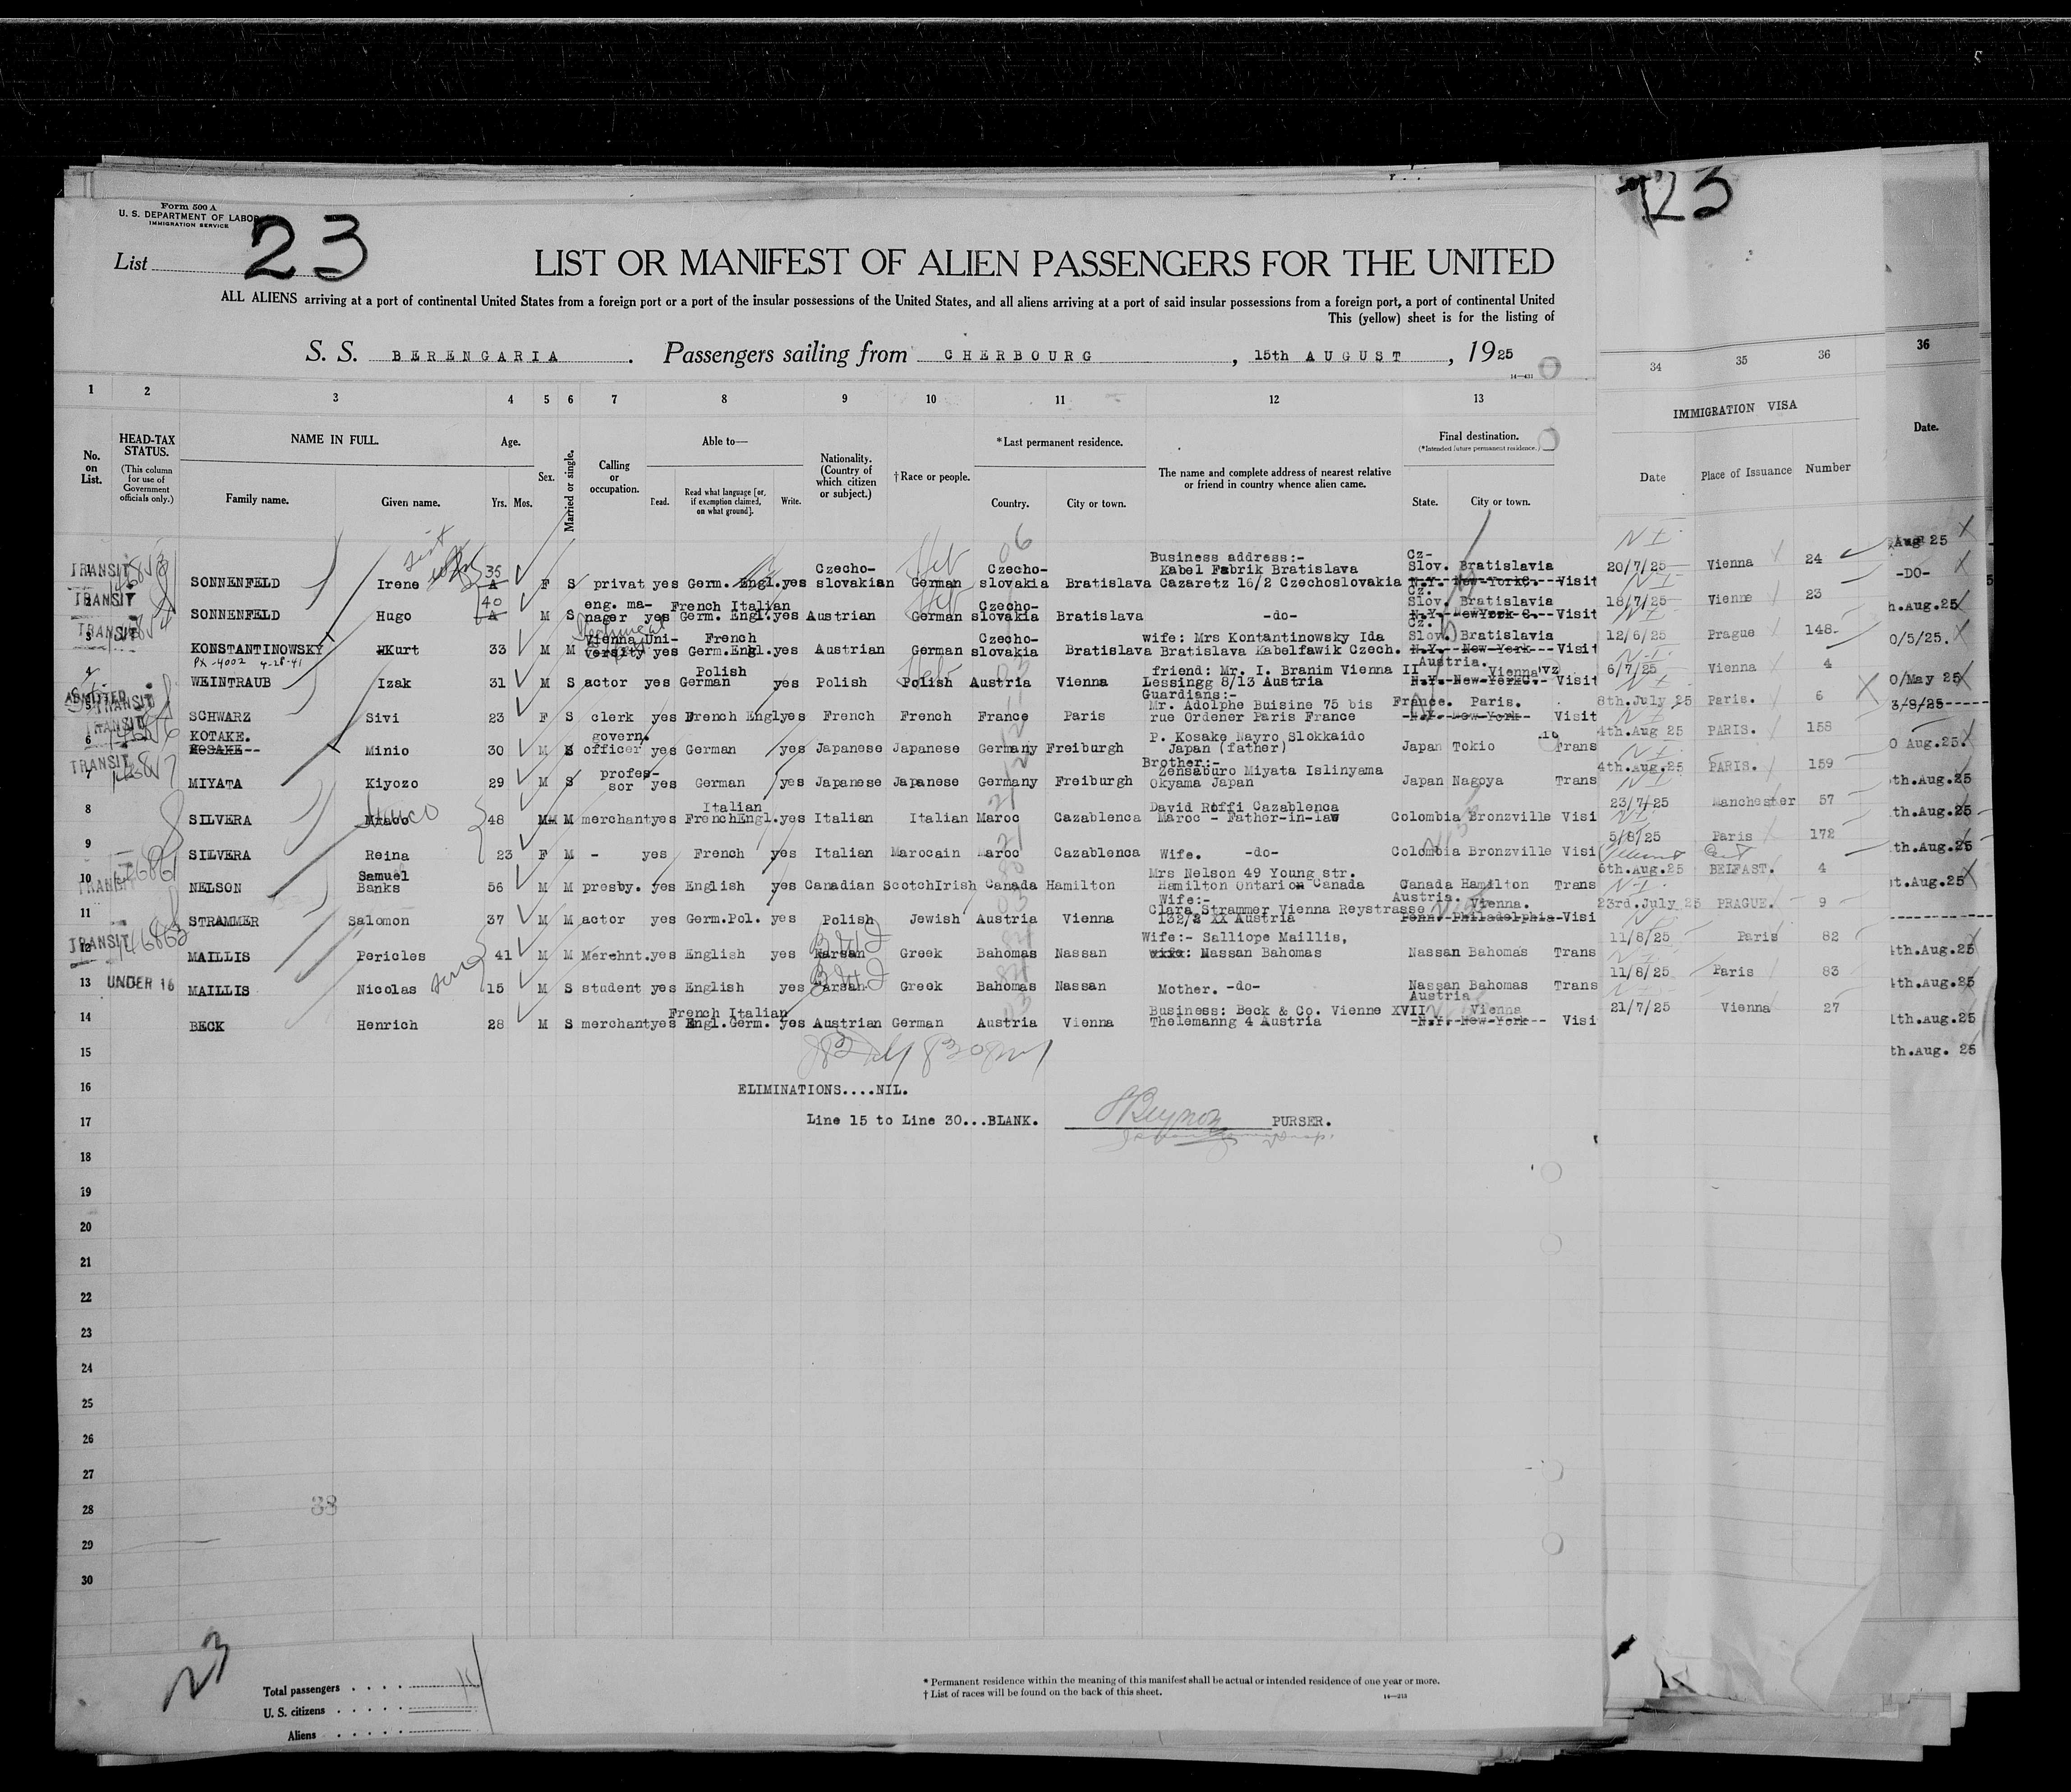 Form 500 A
U. S. DEPARTMENT OF LABOR
IMMIGRATION SERVICE
23
List
LIST OR MANIFEST OF ALIEN PASSENGERS FOR THE UNITED
ALL ALIENS arriving at a port of continental United States from a foreign port or a port of the insular possessions of the United States, and all aliens arriving at a port of said insular possessions from a foreign port, a port of continental United
This (yellow) sheet is for the listing of
S. S. BERENGARIA. Passengers sailing from CHERBOURG, 15th AUGUST, 1925
14—431
1 2 3 4 5 6 7 8 9 10 11 12 13
No. on List.
HEAD-TAX STATUS.
(This column for use of Government officials only.)
NAME IN FULL.
Family name. Given name.
Age.
Yrs. Mos.
Sex.
Married or single.
Calling or occupation.
Able to—
Read. Read what language [or, if exemption claimed, on what ground]. Write.
Nationality. (Country of which citizen or subject.)
† Race or people.
* Last permanent residence.
Country. City or town.
The name and complete address of nearest relative or friend in country whence alien came.
Final destination.
(*Intended future permanent residence.)
State. City or town.
23
34 35 36
IMMIGRATION VISA
Date Place of Issuance Number
36
Date.
TRANSIT 1 SONNENFELD Irene 35 A F S privat yes Germ. Engl. yes Czecho-slovakian German Heb Czecho-slovakia 06 Bratislava Business address:- Kabel Fabrik Bratislava Cazaretz 16/2 Czechoslovakia Cz-Slov. Bratislavia N.Y. New-York C. Visit NI 20/7/25 Vienna 24
TRANSIT 2 SONNENFELD Hugo 40 A M S eng. manager yes French Italian Germ. Engl. yes Austrian German Heb Czecho-slovakia Bratislava -do- Cz. Slov. Bratislavia N.Y. NewYork C. Visit NI 18/7/25 Vienne 23
TRANSIT 3 KONSTANTINOWSKY Kurt 33 M M Vienna University yes French Germ.Engl. yes Austrian German Czecho-slovakia Bratislava wife: Mrs Kontantinowsky Ida Bratislava Kabelfawik Czech. Cz. Slov. Bratislavia N.Y. New-York Visit NI 12/6/25 Prague 148
PX-4002 4-28-41
4 WEINTRAUB Izak 31 M S actor yes Polish German yes Polish Polish Heb Austria 03 Vienna friend: Mr. I. Branim Vienna II Lessingg 8/13 Austria Austria. Vienna N.Y. New-York C. Visit N-I 6/7/25 Vienna 4
ADMITTED TRANSIT 5 SCHWARZ Sivi 23 F S clerk yes French Engl yes French French France Paris Guardians:- Mr. Adolphe Buisine 75 bis rue Ordener Paris France France. Paris. N.Y. New-York Visit NI 8th.July 25 Paris. 6
TRANSIT 6 KOTAKE. KOSAKE Minio 30 M S govern. officer yes German yes Japanese Japanese Germany Freiburgh P. Kosake Nayro Slokkaido Japan (father) Japan Tokio Trans NI 4th.Aug 25 PARIS. 158
TRANSIT 7 MIYATA Kiyozo 29 M S professor yes German yes Japanese Japanese Germany Freiburgh Brother:- Zensaburo Miyata Islinyama Okyama Japan Japan Nagoya Trans NI 4th.Aug.25 PARIS. 159
8 SILVERA 48 M M merchant yes Italian French Engl. yes Italian Italian Maroc 21 Cazablenca David Roffi Cazablenca Maroc - Father-in-law Colombia Bronzville Visi NI 23/7/25 Manchester 57
9 SILVERA Reina 23 F M - yes French yes Italian Marocain Maroc 21 Cazablenca Wife. -do- Colombia Bronzville Visi NI 5/8/25 Paris 172
TRANSIT 10 NELSON Samuel Banks 56 M M presby. yes English yes Canadian ScotchIrish Canada Hamilton Mrs Nelson 49 Young str. Hamilton Ontario Canada Canada Hamilton Trans 6th.Aug.25 BELFAST. 4
11 STRAMMER Salomon 37 M M actor yes Germ.Pol. yes Polish Jewish Austria 03 Vienna Wife:- Clara Strammer Vienna Reystrasse 132/2 XX Austria Austria. Vienna. Penn. Philadelphia Visi N-I 23rd.July 25 PRAGUE. 9
TRANSIT 146863 12 MAILLIS Pericles 41 M M Merchnt. yes English yes Greek Bahomas Nassan Wife:- Salliope Maillis, wife: Nassan Bahomas Nassan Bahomas Trans NI 11/8/25 Paris 82
13 UNDER 16 MAILLIS Nicolas son 15 M S student yes English yes Greek Bahomas Nassan Mother. -do- Nassan Bahomas Trans NI 11/8/25 Paris 83
14 BECK Henrich 28 M S merchant yes French Italian Engl.Germ. yes Austrian German Austria 03 Vienna Business: Beck & Co. Vienne XVII Thelemanng 4 Austria Austria Vienna N.Y. New-York Visi 21/7/25 Vienna 27
Aug 25
-DO-
h.Aug.25
0/5/25.
0/May 25
3/8/25-----
0 Aug.25.
th.Aug.25
th.Aug.25
th.Aug.25
t.Aug.25
4th.Aug.25
4th.Aug.25
4th.Aug.25
th.Aug. 25
15
16 ELIMINATIONS....NIL.
17 Line 15 to Line 30...BLANK. PURSER.
18
19
20
21
22
23
24
25
26
27
28 38
29
30
23
Total passengers
U. S. citizens
Aliens
* Permanent residence within the meaning of this manifest shall be actual or intended residence of one year or more.
† List of races will be found on the back of this sheet.
14—213